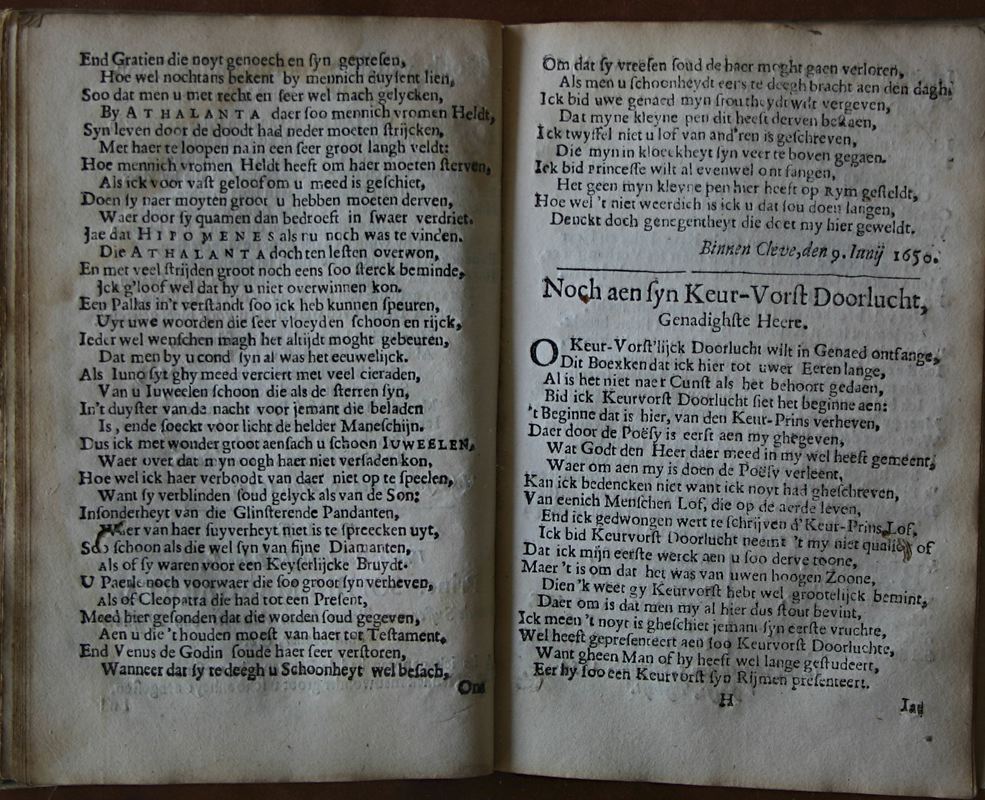 End Gratien die noyt genoech en ſyn gepreſen,
Hoe wel nochtans bekent by mennich duyſent lien,
Soo dat men u met recht en ſeer wel mach gelycken,
By ATHALANTA daer ſoo mennich vromen Heldt,
Syn leven door de doodt had neder moeten ſtrijcken,
Met haer te loopen na in een ſeer groot langh veldt:
Hoe mennich vromen Heldt heeft om haer moeten ſterven,
Als ick voor vaſt geloof om u meed is geſchiet,
Doen ſy naer moyten groot u hebben moeten derven,
Waer door ſy quamen dan bedroeft in ſwaer verdriet.
Jae dat HIPOMENES als nu noch was te vinden.
Die ATHALANTA doch ten leſten overwon,
En met veel ſtrijden groot noch eens ſoo ſterck beminde,
Jck g'loof wel dat hy u niet overwinnen kon.
Een Pallas in't verſtandt ſoo ick heb kunnen ſpeuren,
Uyt uwe woorden die ſeer vloeyden ſchoon en rijck,
Ieder wel wenſchen magh het altijdt moght gebeuren,
Dat men by u cond ſyn al was het eeuwelijck.
Als Iuno ſyt ghy meed verciert met veel cieraden,
Van u Iuweelen ſchoon die als de ſterren ſyn,
In't duyſter van de nacht voor jemant die beladen
Is, ende ſoeckt voor licht de helder Maneſchijn.
Dus ick met wonder groot aenſach u ſchoon IUWEELEN,
Waer over dat myn oogh haer niet verſaden kon,
Hoe wel ick haer verboodt van daer niet op te ſpeelen,
Want ſy verblinden ſoud gelyck als van de Son:
Inſonderheyt van die Glinſterende Pandanten,
Wier van haer ſuyverheyt niet is te ſpreecken uyt,
Soo ſchoon als die wel ſyn van fijne Diamanten,
Als of ſy waren voor een Keyſerlijcke Bruydt.
U Paerle noch voorwaer die ſoo groot ſyn verheven,
Als of Cleopatra die had tot een Preſent,
Meed hier geſonden dat die worden ſoud gegeven,
Aen u die 't houden moeſt van haer tot Teſtament.
End Venus de Godin ſoude haer ſeer verſtoren,
Wanneer dat ſy te deegh u Schoonheyt wel beſach,
Om
Om dat ſy vreeſen ſoud de haer moght gaen verloren,
Als men u ſchoonheydt eers te deegh bracht aen den dagh.
Ick bid uwe genaed myn ſtoutheydt wilt vergeven,
Dat myne kleyne pen dit heeft derven beſtaen,
Ick twyffel niet u lof van and'ren is geſchreven,
Die myn in kloeckheyt ſyn veer te boven gegaen.
Ick bid Princeſſe wilt al evenwel ontfangen,
Het geen myn kleyne pen hier heeft op Rym geſteldt,
Hoe wel 't niet weerdich is ick u dat ſou doen langen,
Denckt doch genegentheyt die doet my hier geweldt.
Binnen Cleve, den 9. Iunij 1650.
Noch aen ſyn Keur-Vorſt Doorlucht,
Genadighſte Heere.
O Keur-Vorſt'lijck Doorlucht wilt in Genaed ontfange,
Dit Boexken dat ick hier tot uwer Eeren lange,
Al is het niet naer Cunſt als het behoort gedaen,
Bid ick Keurvorſt Doorlucht ſiet het beginne aen:
't Beginne dat is hier, van den Keur-Prins verheven,
Daer door de Poëſy is eerſt aen my ghegeven,
Wat Godt den Heer daer meed in my wel heeft gemeent,
Waer om aen my is doen de Poëſy verleent,
Kan ick bedencken niet want ick noyt had gheſchreven,
Van eenich Menſchen Lof, die op de aerde leven,
End ick gedwongen wert te ſchrijven d'Keur-Prins Lof,
Ick bid Keurvorſt Doorlucht neemt 't my niet qualick of
Dat ick mijn eerſte werck aen u ſoo derve toone,
Maer 't is om dat het was van uwen hoogen Zoone,
Dien 'k weet gy Keurvorſt hebt wel grootelijck bemint,
Daer om is dat men my al hier dus ſtout bevint,
Ick meen 't noyt is gheſchiet jemant ſyn eerſte vruchte,
Wel heeft gepreſenteert aen ſoo Keurvorſt Doorluchte,
Want gheen Man of hy heeft wel lange geſtudeert,
Eer hy ſoo een Keurvorſt ſyn Rijmen preſenteert.
H
Iae